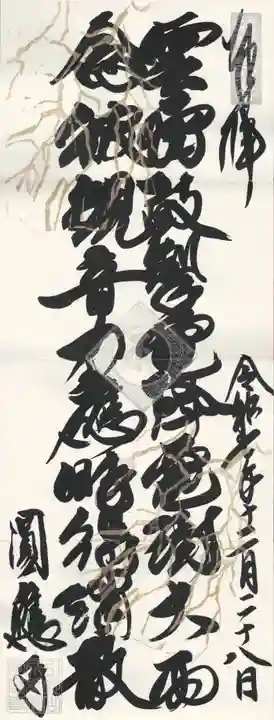 奉拝
雲雷鼓掣電降雹澍大雨
念彼観音力應時得消散
令和六年十二月二十八日
圓應寺